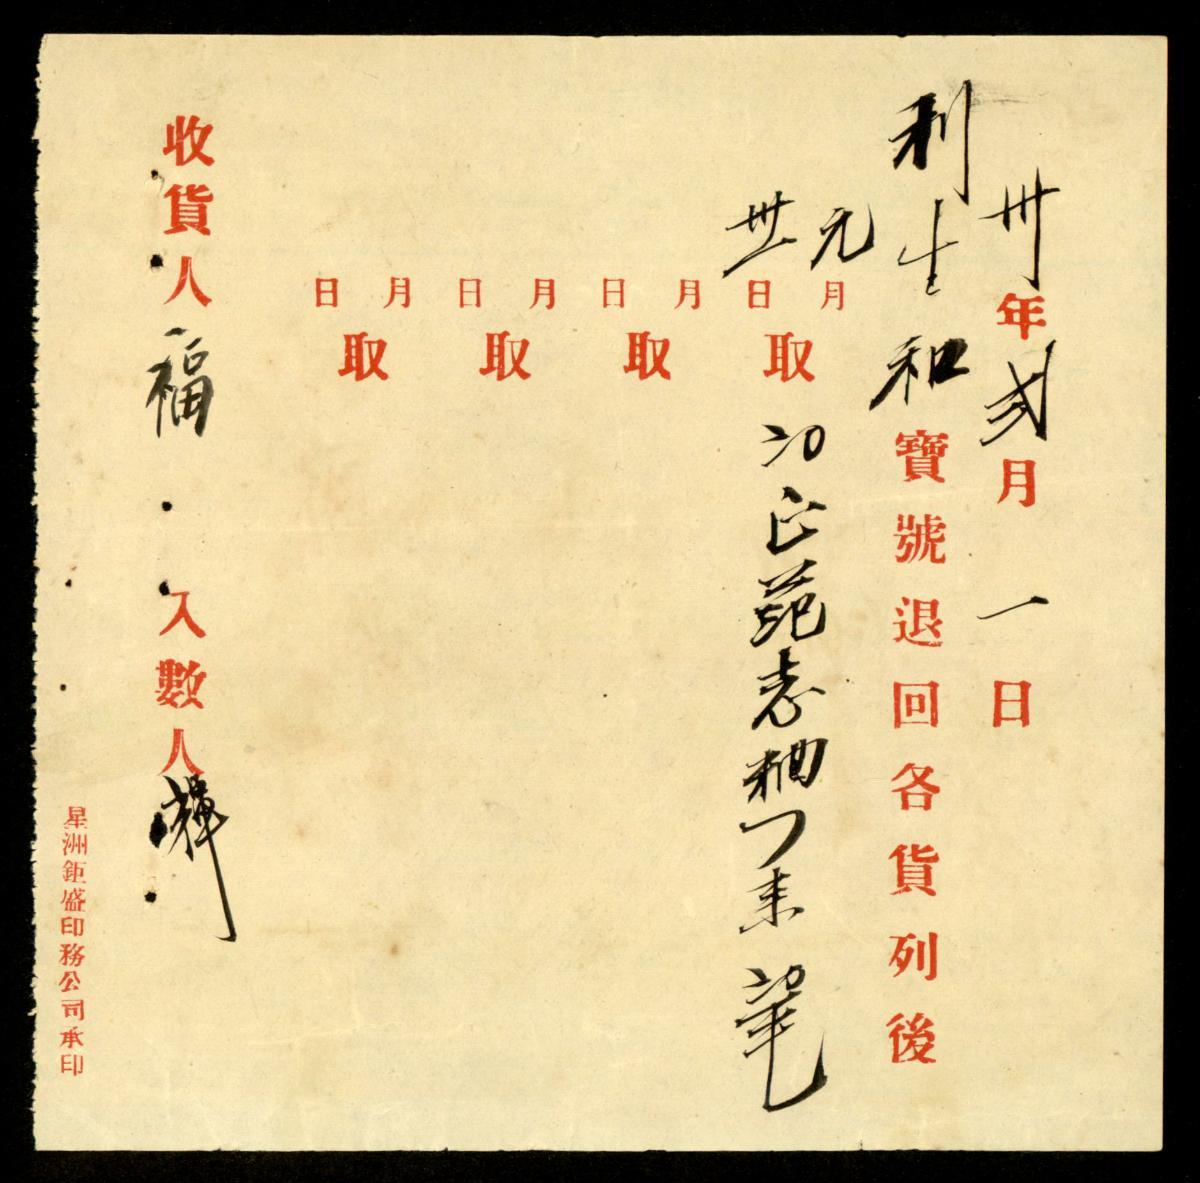 卅年弍月一日
利生和寶號退回各貨列後
元月卅一日取
月日取
月日取
月日取
收貨人福入數人輝
星洲鉅盛印務公司承印